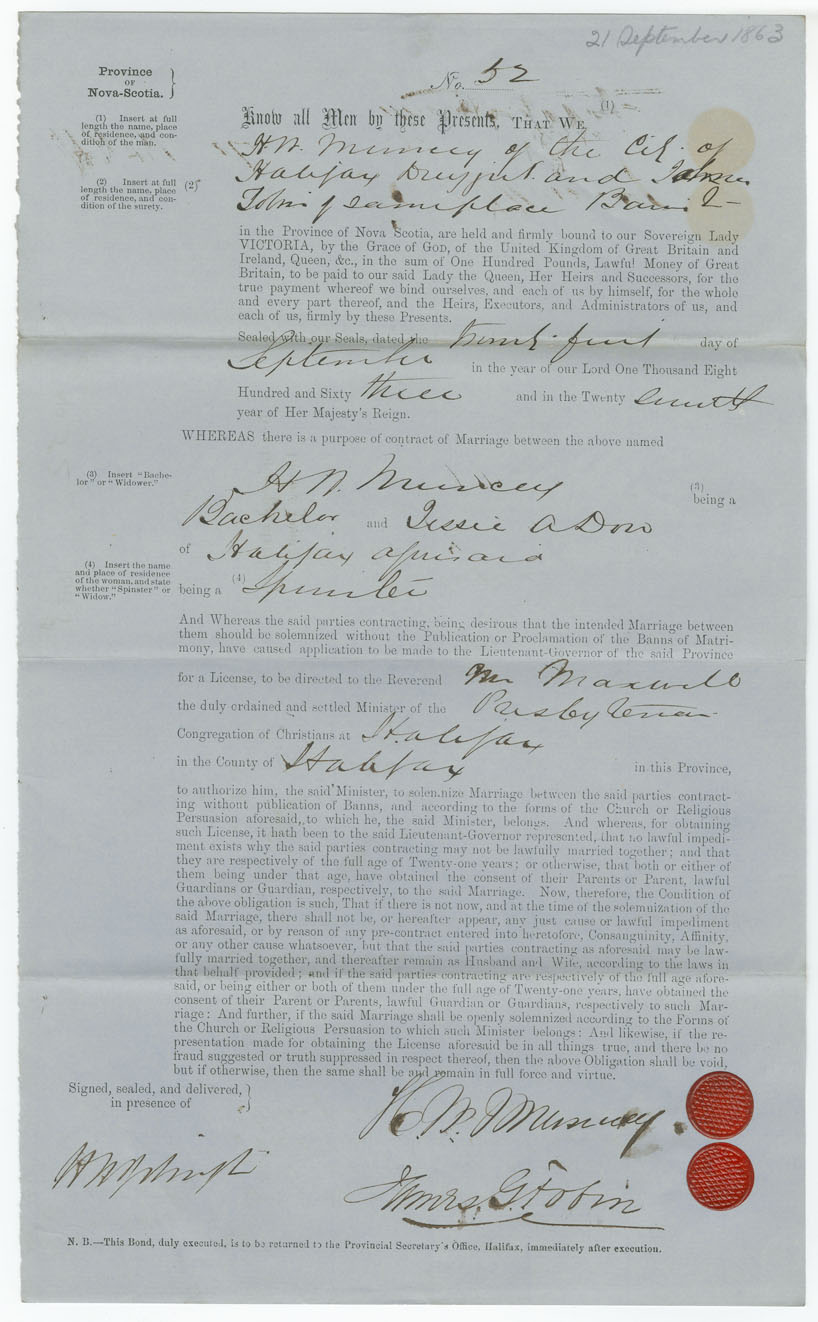 21 September 1863
Province
OF
Nova-Scotia.
No. 52
(1) Insert at full
length the name, place
of residence, and con-
dition of the man.
(1)
Know all Men by these Presents, THAT WE
H W. Muncey of the City of
(2) Insert at full
length the name, place
of residence, and con-
dition of the surety.
(2)
Halifax Druggist and James
Tobin of same place
in the Province of Nova Scotia, are held and firmly bound to our Sovereign Lady
VICTORIA, by the Grace of GOD, of the United Kingdom of Great Britain and
Ireland, Queen, &c., in the sum of One Hundred Pounds, Lawful Money of Great
Britain, to be paid to our said Lady the Queen, Her Heirs and Successors, for the
true payment whereof we bind ourselves, and each of us by himself, for the whole
and every part thereof, and the Heirs, Executors, and Administrators of us, and
each of us, firmly by these Presents.
Sealed with our Seals, dated the twenty first day of
September in the year of our Lord One Thousand Eight
Hundred and Sixty three and in the Twenty seventh
year of Her Majesty's Reign.
WHEREAS there is a purpose of contract of Marriage between the above named
(3) Insert "Bache-
lor" or "Widower."
H W. Muncey (3) being a
Bachelor and Jessie A Dow
of Halifax aforesaid
(4) Insert the name
and place of residence
of the woman, and state
whether "Spinster" or
"Widow."
being a (4) Spinster
And Whereas the said parties contracting, being desirous that the intended Marriage between
them should be solemnized without the Publication or Proclamation of the Banns of Matri-
mony, have caused application to be made to the Lieutenant-Governor of the said Province
for a License, to be directed to the Reverend Mr Maxwell
the duly ordained and settled Minister of the Presbyterian
Congregation of Christians at Halifax
in the County of Halifax in this Province,
to authorize him, the said Minister, to solemnize Marriage between the said parties contract-
ing without publication of Banns, and according to the forms of the Church or Religious
Persuasion aforesaid, to which he, the said Minister, belongs. And whereas, for obtaining
such License, it hath been to the said Lieutenant-Governor represented, that no lawful impedi-
ment exists why the said parties contracting may not be lawfully married together; and that
they are respectively of the full age of Twenty-one years; or otherwise, that both or either of
them being under that age, have obtained the consent of their Parents or Parent, lawful
Guardians or Guardian, respectively, to the said Marriage. Now, therefore, the Condition of
the above obligation is such, That if there is not now, and at the time of the solemnization of the
said Marriage, there shall not be, or hereafter appear, any just cause or lawful impediment
as aforesaid, or by reason of any pre-contract entered into heretofore, Consanguinity, Affinity,
or any other cause whatsoever, but that the said parties contracting as aforesaid may be law-
fully married together, and thereafter remain as Husband and Wife, according to the laws in
that behalf provided; and if the said parties contracting are respectively of the full age afore-
said, or being either or both of them under the full age of Twenty-one years, have obtained the
consent of their Parent or Parents, lawful Guardian or Guardians, respectively to such Mar-
riage: And further, if the said Marriage shall be openly solemnized according to the Forms of
the Church or Religious Persuasion to which such Minister belongs: And likewise, if the re-
presentation made for obtaining the License aforesaid be in all things true, and there be no
fraud suggested or truth suppressed in respect thereof, then the above Obligation shall be void,
but if otherwise, then the same shall be and remain in full force and virtue.
Signed, sealed, and delivered,
in presence of
H. W. Muncey.
James. G. Tobin
N. B.—This Bond, duly executed, is to be returned to the Provincial Secretary's Office, Halifax, immediately after execution.